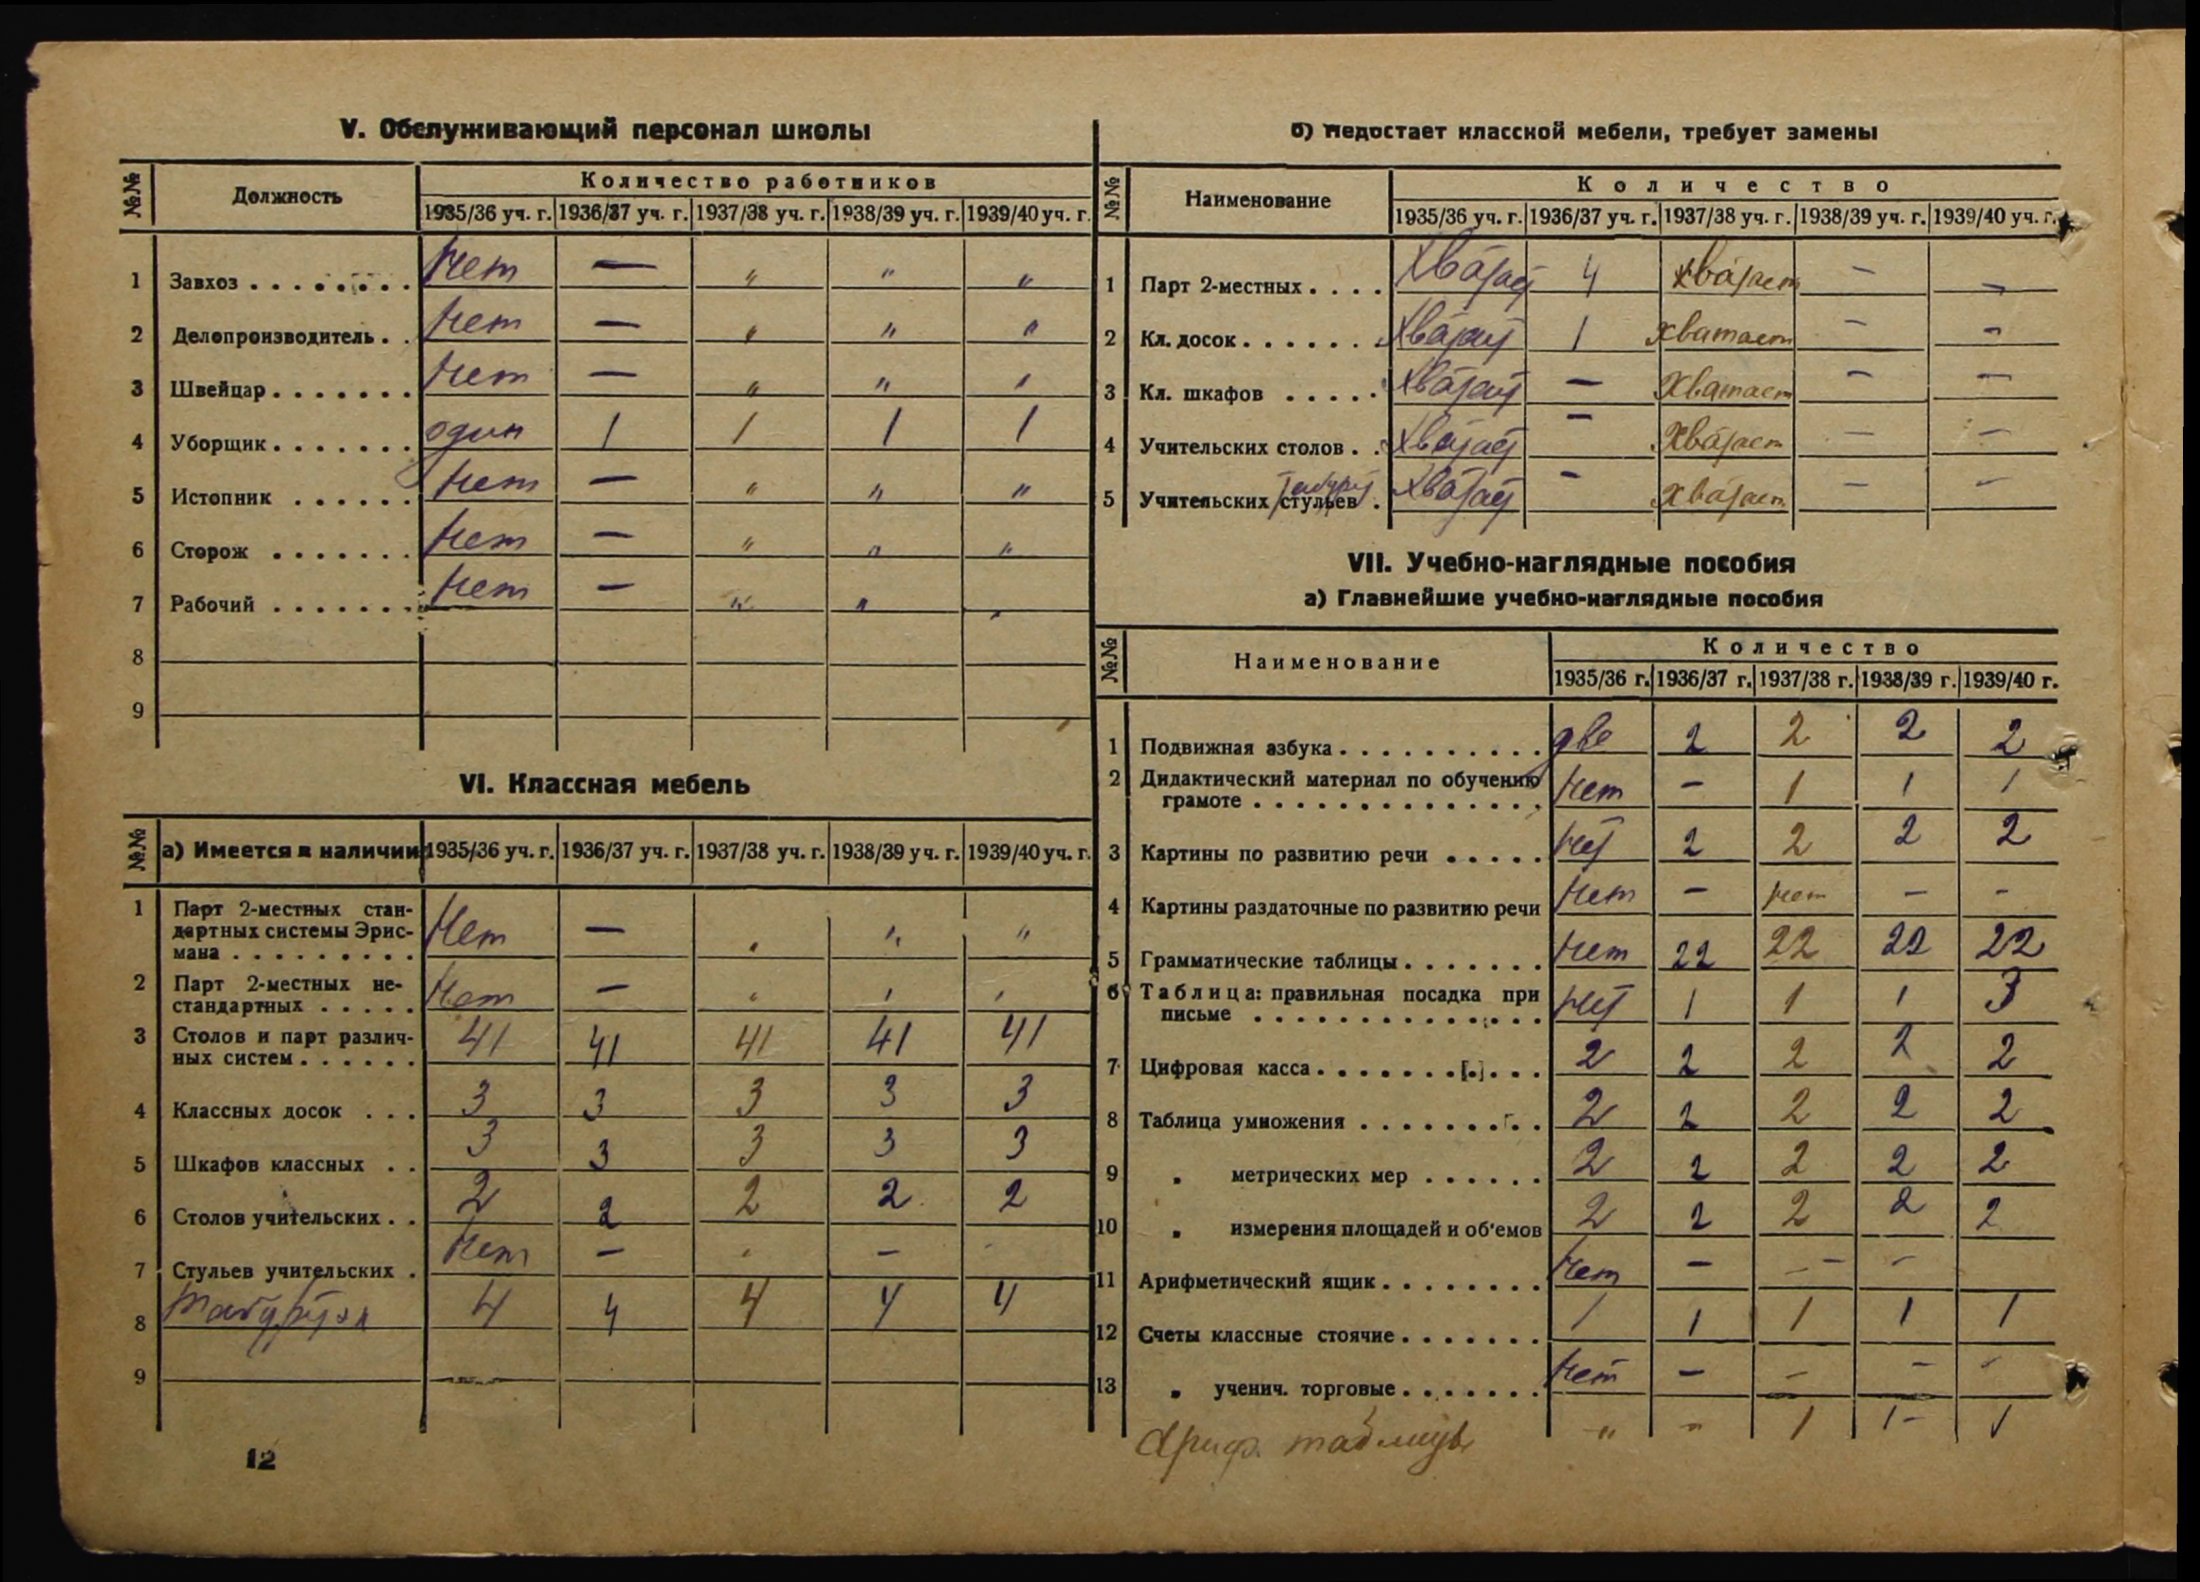 V. Обслуживающий персонал школы
№№ Должность Количество работников
1935/36 уч. г. 1936/37 уч. г. 1937/38 уч. г. 1938/39 уч. г. 1939/40 уч. г.
1 Завхоз . . . . . . . . нет — " " "
2 Делопроизводитель . . нет — " " "
3 Швейцар . . . . . . . нет — " " "
4 Уборщик . . . . . . . один 1 1 1 1
5 Истопник . . . . . . нет — " " "
6 Сторож . . . . . . . нет — " " "
7 Рабочий . . . . . . . нет — " " "
8
9
VI. Классная мебель
№№ а) Имеется в наличии 1935/36 уч. г. 1936/37 уч. г. 1937/38 уч. г. 1938/39 уч. г. 1939/40 уч. г.
1 Парт 2-местных стан-
дартных системы Эрис-
мана . . . . . . . . . Нет — " " "
2 Парт 2-местных не-
стандартных . . . . . Нет — " " "
3 Столов и парт различ-
ных систем . . . . . . 41 41 41 41 41
4 Классных досок . . . 3 3 3 3 3
5 Шкафов классных . . 3 3 3 3 3
6 Столов учительских . . 2 2 2 2 2
7 Стульев учительских . нет — " —
8 Табуреток 4 4 4 4 4
9
12
б) Недостает классной мебели, требует замены
№№ Наименование Количество
1935/36 уч. г. 1936/37 уч. г. 1937/38 уч. г. 1938/39 уч. г. 1939/40 уч. г.
1 Парт 2-местных . . . . Хватает 4 хватает — —
2 Кл. досок . . . . . . . Хватает 1 хватает — —
3 Кл. шкафов . . . . . Хватает — хватает — —
4 Учительских столов . . Хватает — хватает — —
5 Учительских стульев . Хватает — хватает — —
VII. Учебно-наглядные пособия
а) Главнейшие учебно-наглядные пособия
№№ Наименование Количество
1935/36 г. 1936/37 г. 1937/38 г. 1938/39 г. 1939/40 г.
1 Подвижная азбука . . . . . . . . . . две 2 2 2 2
2 Дидактический материал по обучению
грамоте . . . . . . . . . . . . . . . нет — 1 1 1
3 Картины по развитию речи . . . . . нет 2 2 2 2
4 Картины раздаточные по развитию речи нет — нет — —
5 Грамматические таблицы . . . . . . . нет 22 22 22 22
6 Таблица: правильная посадка при
письме . . . . . . . . . . . . . . нет 1 1 1 3
7 Цифровая касса . . . . . . . [.] . . . 2 2 2 2 2
8 Таблица умножения . . . . . . . . . 2 2 2 2 2
9 „ метрических мер . . . . . . 2 2 2 2 2
10 „ измерения площадей и об'емов 2 2 2 2 2
11 Арифметический ящик . . . . . . . . нет — — —
12 Счеты классные стоячие . . . . . . . 1 1 1 1 1
13 „ ученич. торговые . . . . . . . нет — — — —
Ариф. таблицы " " 1 1 — 1